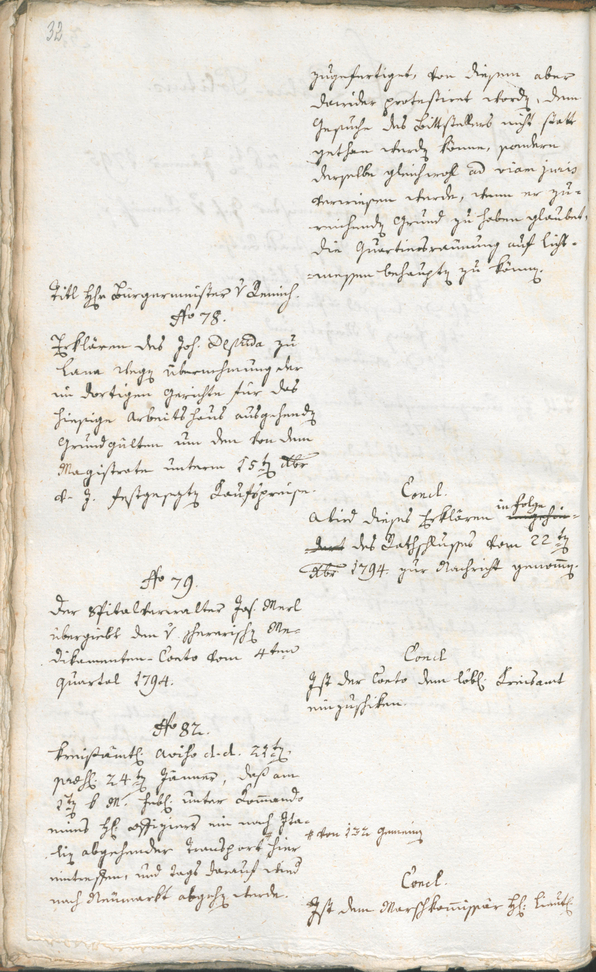 32
zugefertiget, von diesem aber
dawider protestiret word, dem
Gesuche des Bittstellers nicht statt
gethan werden könne, sondern
derselbe gleichwohl ad viam juris
verwiesen werde, wenn er zu-
reichend Grund zu haben glaubet,
die Quartiersraumung auf Licht-
messen behaupten zu können.
Titl H: Bürgermeister v
No 78.
Erklären des Joh. zu
Lana wegen Uibernehmung der
im dortigen Gerichte für das
hiesige Arbeitshaus ausgehenden
Grundgülten um den von dem
Magistrate unterm 15ten Xbr
v. J. festgesezten Kaufspreise.
Concl.
Wird dieses Erklären in Folge
des Rathschlusses vom 22ten
Xbr 1794. zur Nachricht genommen.
No 79.
Der Spitalverwalter Jos. Merl
übergiebt den v. Me-
dikamenten-Conto vom 4tem
Quartal 1794.
Concl
Ist der Conto dem löbl: Kreisamt
einzuschiken.
No 82.
Kreisämtl: Aviso d.d. 21ten
24ten Jänner, daß am
1ten k. M. unter Kommando
eines H: Offiziers ein nach Ita-
lien abgehender Transport hier
eintreffen, und Tags darauf
nach Neumarkt abgehen werde.
von 132 Gemeinen
Concl.
Ist dem Marschkommissär H: Lieut: